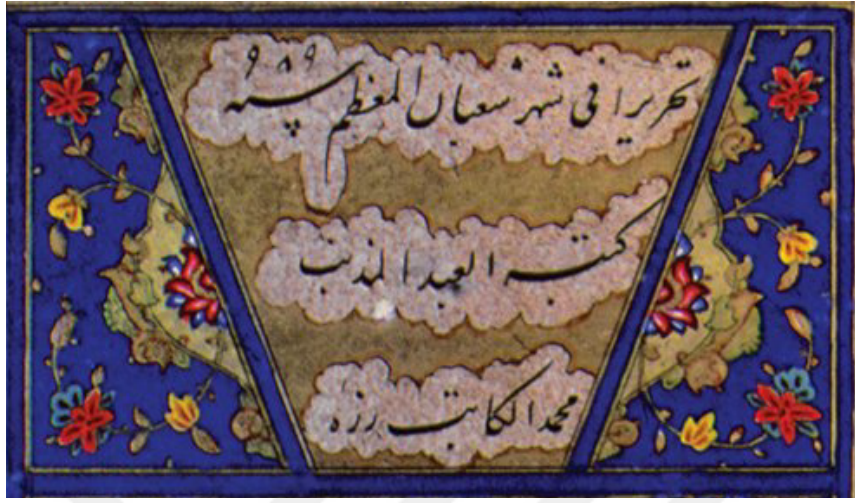 تحریرا فی شهر شعبان المعظم سنه ۹۸۹
کتبه العبد المذنب
محمد الکاتب رزه